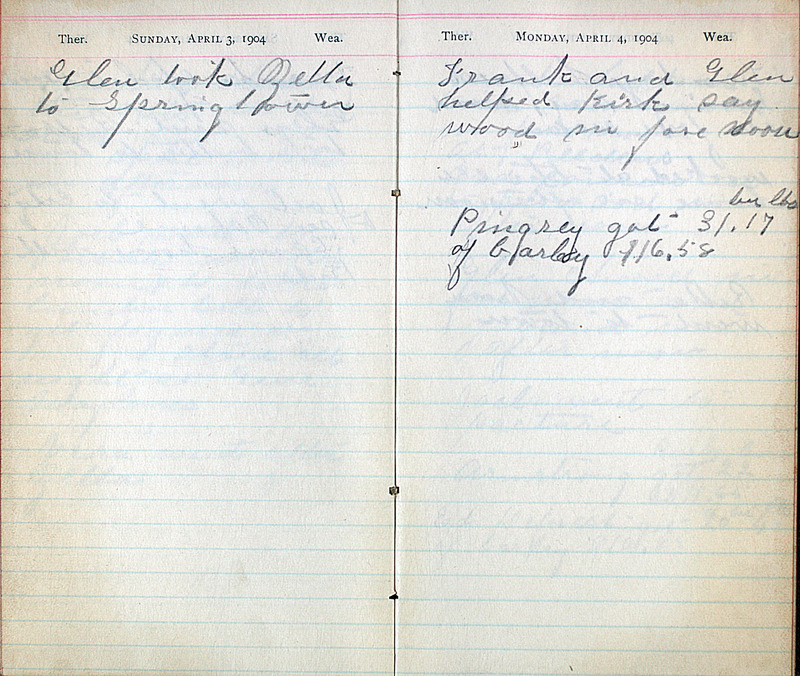 Ther. SUNDAY, APRIL 3, 1904 Wea.
Glen took Zella
to Springtown
Ther. MONDAY, APRIL 4, 1904 Wea.
Frank and Glen
helped Kirk say
wood in fore noon
bu lbs
Pingrey got 31.17
of barley $16.58